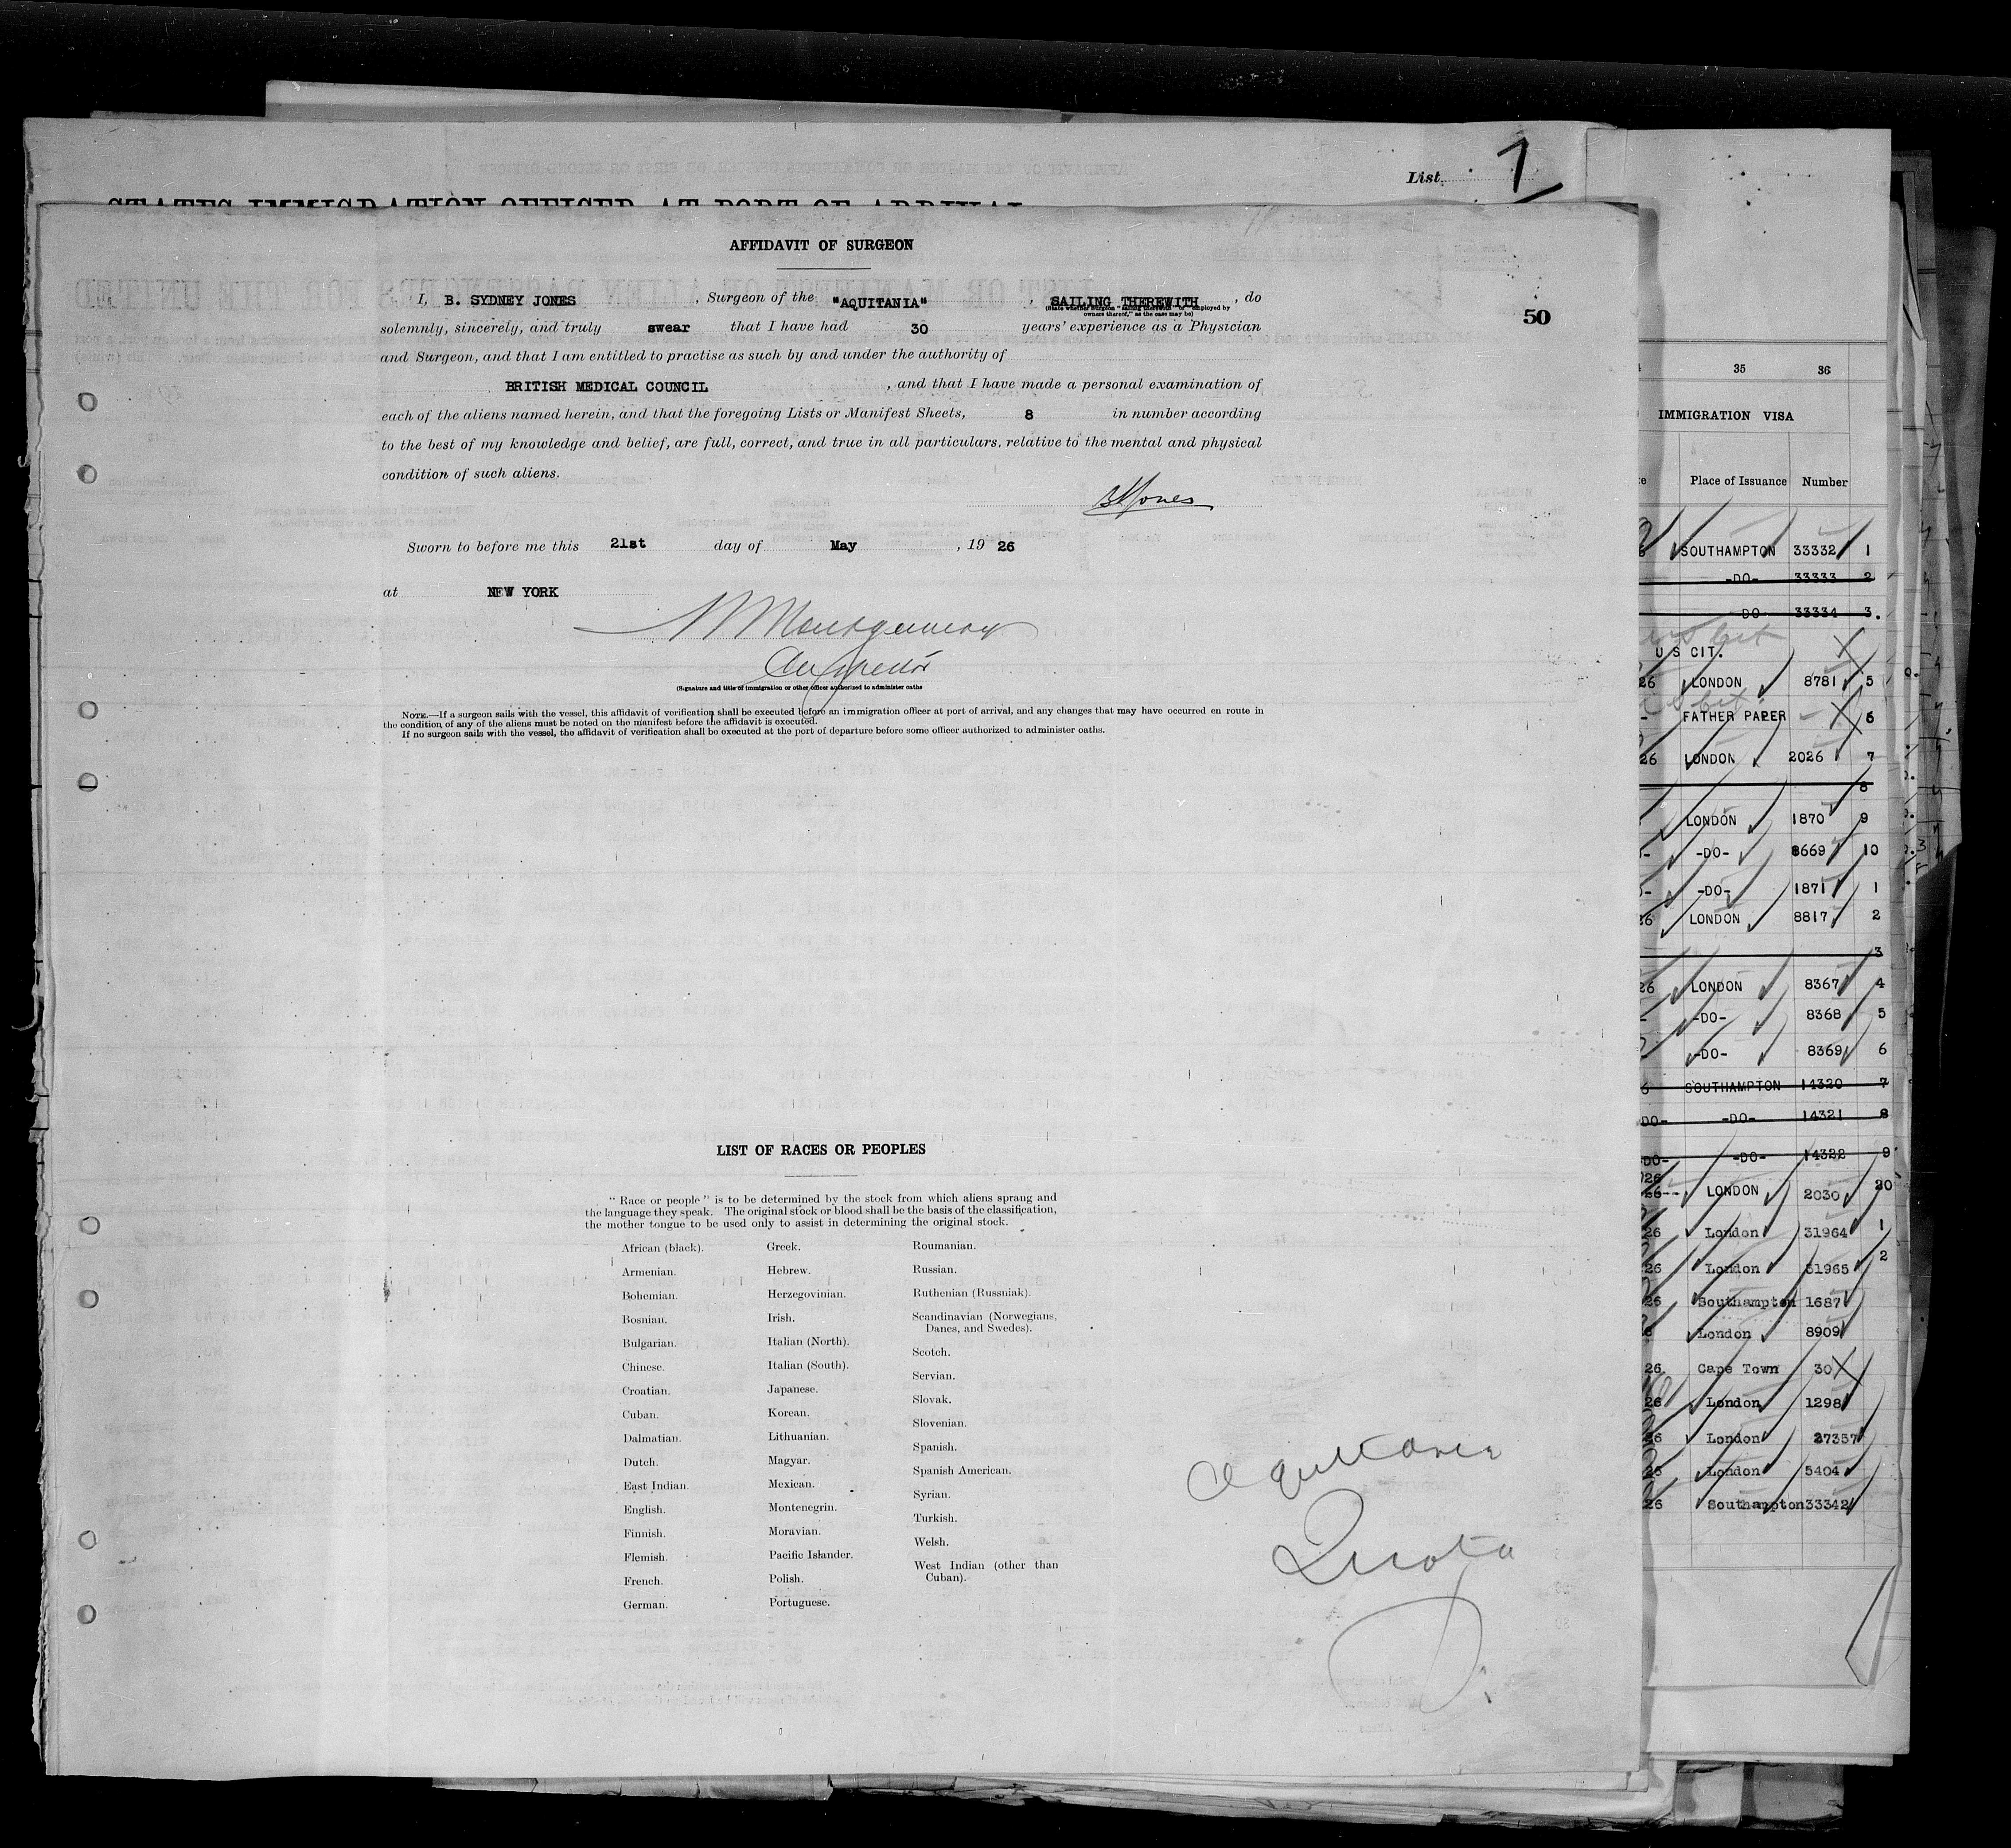 List 7
STATES IMMIGRATION OFFICER AT PORT OF ARRIVAL
AFFIDAVIT OF SURGEON
I, B. SYDNEY JONES, Surgeon of the "AQUITANIA", SAILING THEREWITH, do
(State whether Surgeon "sailing therewith" or "employed by
owners thereof," as the case may be)
solemnly, sincerely, and truly swear that I have had 30 years' experience as a Physician
and Surgeon, and that I am entitled to practise as such by and under the authority of
BRITISH MEDICAL COUNCIL, and that I have made a personal examination of
each of the aliens named herein, and that the foregoing Lists or Manifest Sheets, 8 in number according
to the best of my knowledge and belief, are full, correct, and true in all particulars. relative to the mental and physical
condition of such aliens.
BSJones
Sworn to before me this 21st day of May, 19 26
at NEW YORK
Montgomery
Inspector
(Signature and title of immigration or other officer authorized to administer oaths
NOTE.—If a surgeon sails with the vessel, this affidavit of verification shall be executed before an immigration officer at port of arrival, and any changes that may have occurred en route in
the condition of any of the aliens must be noted on the manifest before the affidavit is executed.
If no surgeon sails with the vessel, the affidavit of verification shall be executed at the port of departure before some officer authorized to administer oaths.
50
LIST OF RACES OR PEOPLES
"Race or people" is to be determined by the stock from which aliens sprang and
the language they speak. The original stock or blood shall be the basis of the classification,
the mother tongue to be used only to assist in determining the original stock.
African (black).
Armenian.
Bohemian.
Bosnian.
Bulgarian.
Chinese.
Croatian.
Cuban.
Dalmatian.
Dutch.
East Indian.
English.
Finnish.
Flemish.
French.
German.
Greek.
Hebrew.
Herzegovinian.
Irish.
Italian (North).
Italian (South).
Japanese.
Korean.
Lithuanian.
Magyar.
Mexican.
Montenegrin.
Moravian.
Pacific Islander.
Polish.
Portuguese.
Roumanian.
Russian.
Ruthenian (Russniak).
Scandinavian (Norwegians,
Danes, and Swedes).
Scotch.
Servian.
Slovak.
Slovenian.
Spanish.
Spanish American.
Syrian.
Turkish.
Welsh.
West Indian (other than
Cuban).
Aquitania
Quota
35 36
IMMIGRATION VISA
Place of Issuance Number
SOUTHAMPTON 33332 1
-DO- 33333 2
-DO- 33334 3.
U S CIT.
26 LONDON 8781 5
FATHER PAPER 6
26 LONDON 2026 7
8
LONDON 1870 9
-DO- 8669 10
-DO- 1871 1
26 LONDON 8817 2
3
26 LONDON 8367 4
-DO- 8368 5
-DO- 8369 6
SOUTHAMPTON 14320 7
-DO- -DO- 14321 8
-DO- -DO- 14322 9
26 LONDON 2030 20
26 London 31964 1
26 London 31965 2
26 Southampton 1687
London 8909
26. Cape Town 30
26 London 1298
26 London 27357
26 London 5404
26 Southampton 33342